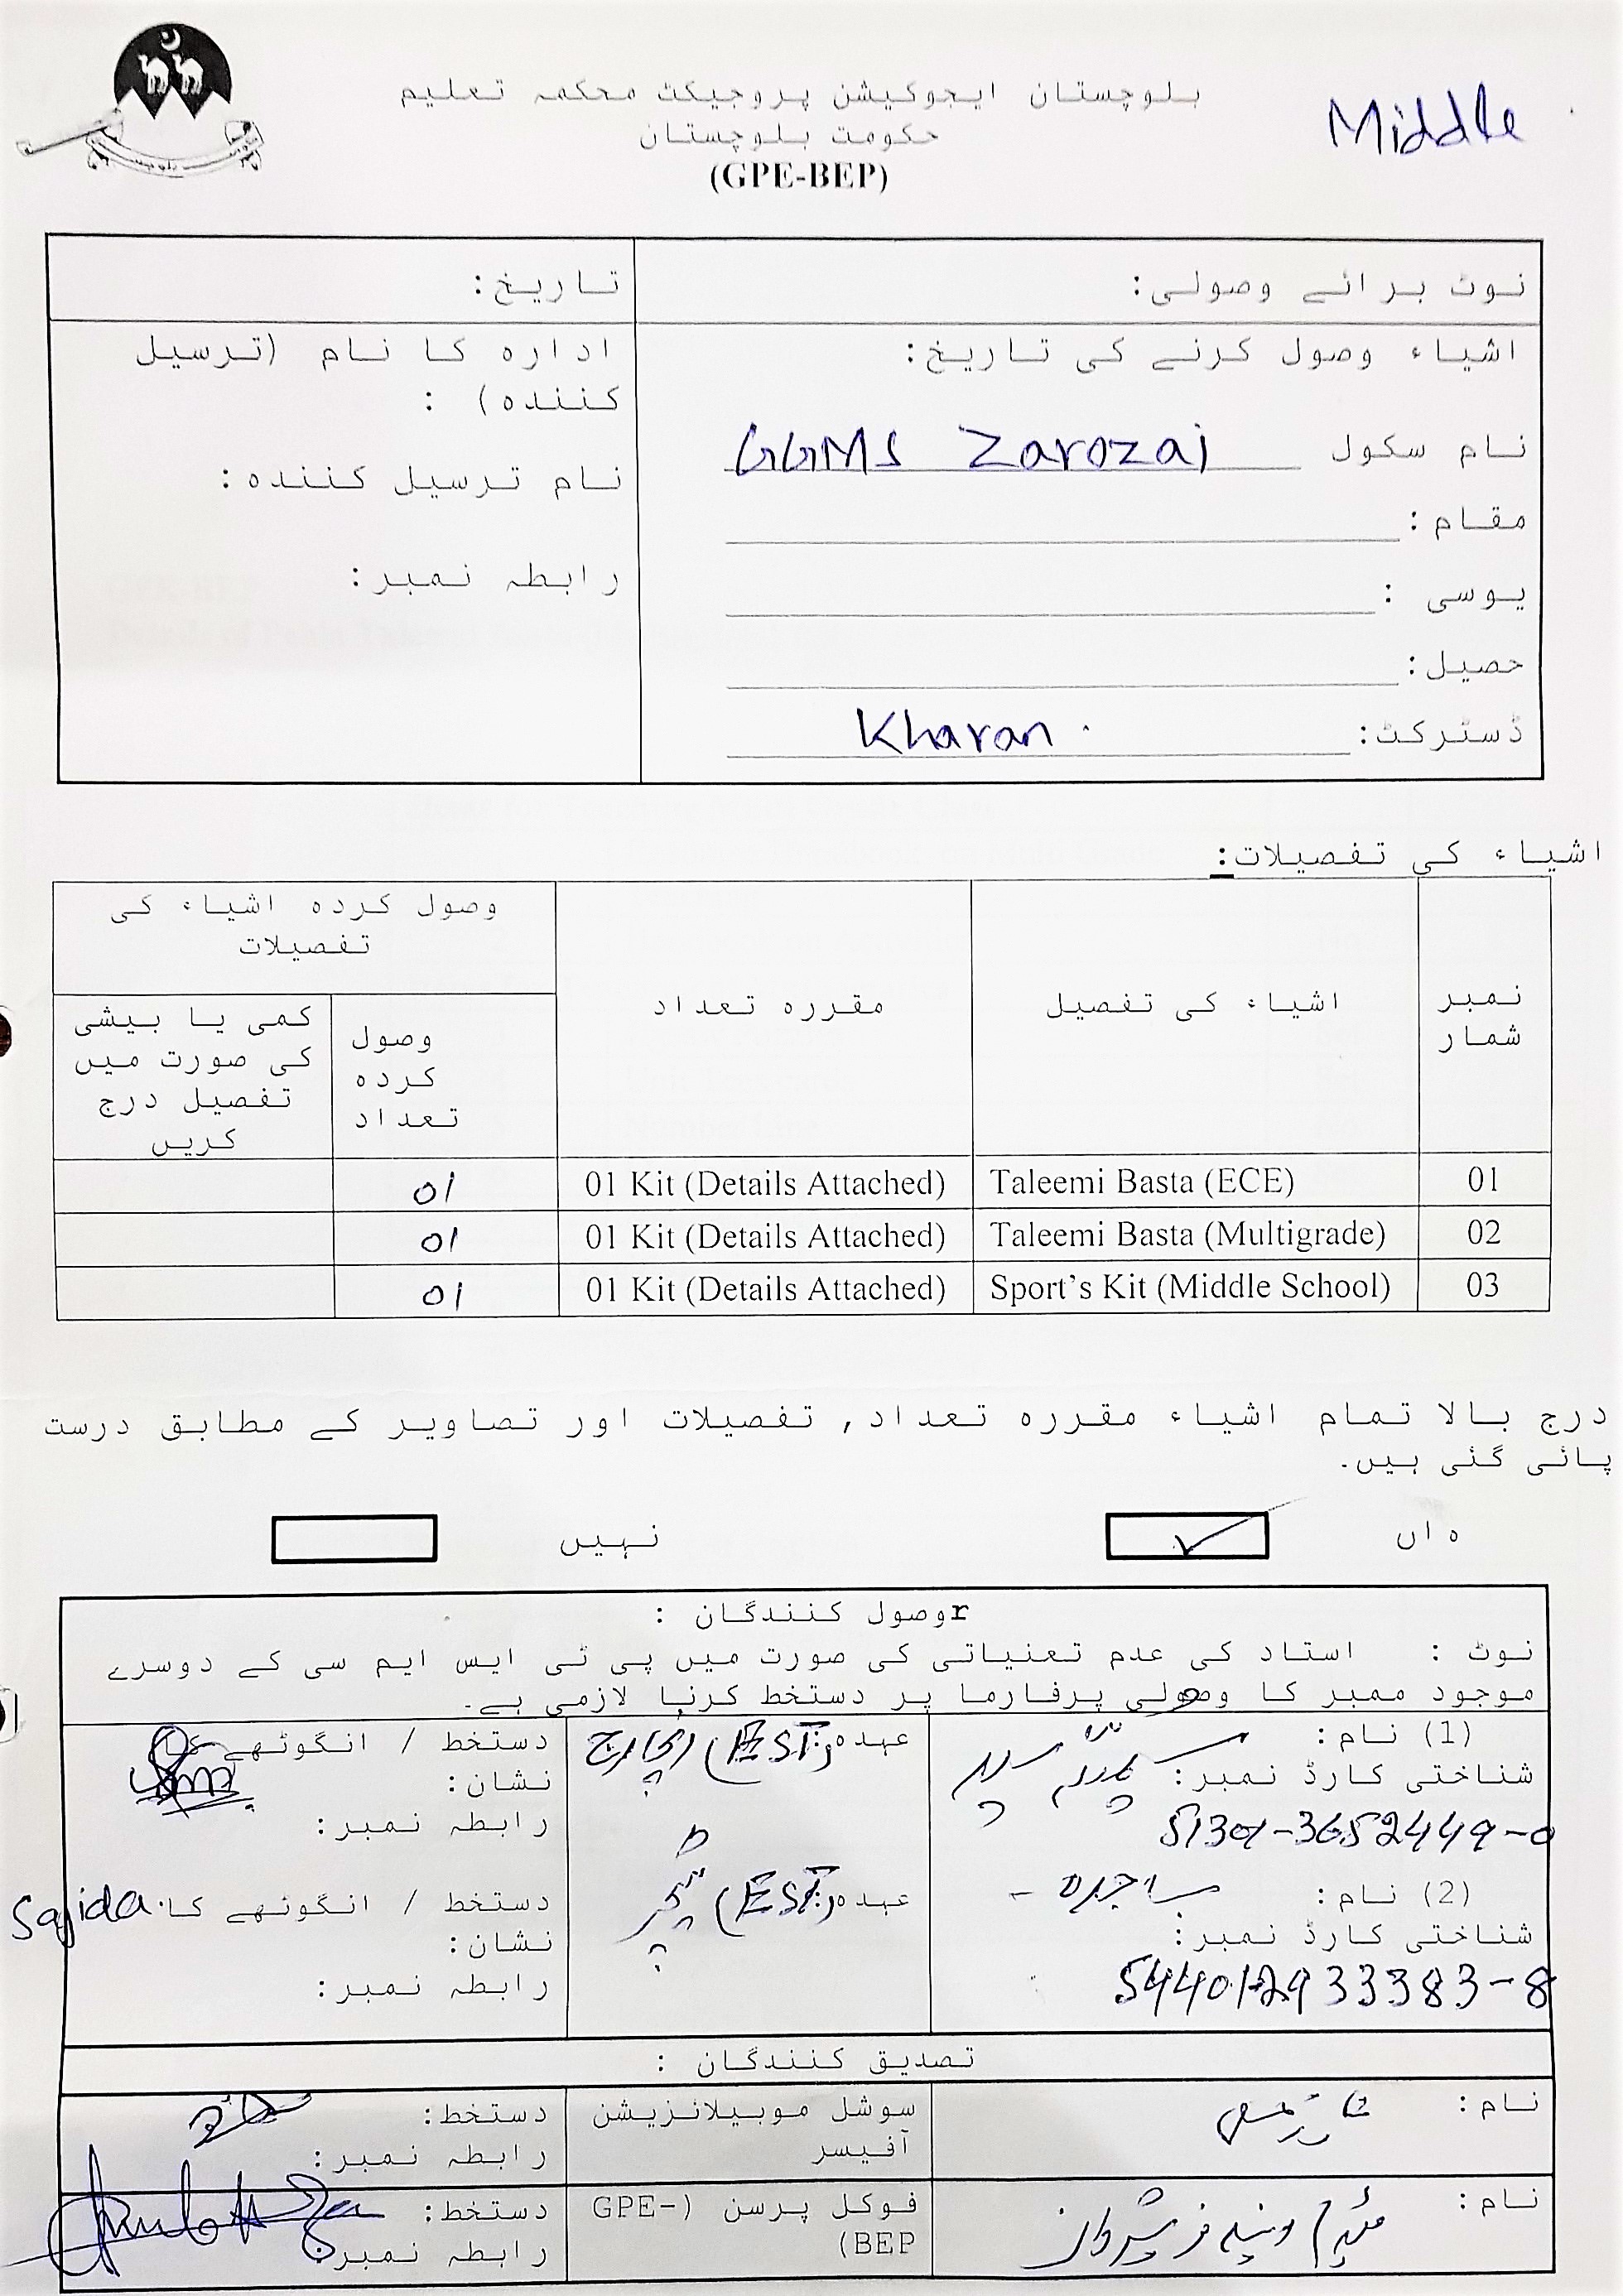 بلوچستان ایجوکیشن پروجیکٹ محکمہ تعلیم
حکومت بلوچستان
(GPE-BEP)
Middle
نوٹ برائے وصولی:
تاریخ:
اشیاء وصول کرنے کی تاریخ:
نام سکول GGMS Zarozai
مقام:
یوسی :
حصیل:
ڈسٹرکٹ: Kharan
ادارہ کا نام (ترسیل
کنندہ) :
نام ترسیل کنندہ:
رابطہ نمبر:
اشیاء کی تفصیلات:
نمبر شمار
اشیاء کی تفصیل
مقررہ تعداد
وصول کردہ اشیاء کی
تفصیلات
وصول
کردہ
تعداد
کمی یا بیشی
کی صورت میں
تفصیل درج
کریں
01 Taleemi Basta (ECE) 01 Kit (Details Attached) 01
02 Taleemi Basta (Multigrade) 01 Kit (Details Attached) 01
03 Sport’s Kit (Middle School) 01 Kit (Details Attached) 01
درج بالا تمام اشیاء مقررہ تعداد, تفصیلات اور تصاویر کے مطابق درست
پائی گئی ہیں.
ہاں
نہیں
rوصول کنندگان :
نوٹ : استاد کی عدم تعنیاتی کی صورت میں پی ٹی ایس ایم سی کے دوسرے
موجود ممبر کا وصولی پرفارما پر دستخط کرنا لازمی ہے.
(1) نام:
شناختی کارڈ نمبر:
عہدہ: (EST) انچارج
دستخط / انگوٹھے کا
نشان:
رابطہ نمبر:
(2) نام: ساجدہ
شناختی کارڈ نمبر:
544012933383-8
عہدہ: (EST) ٹیچر
دستخط / انگوٹھے کا Sajida
نشان:
رابطہ نمبر:
تصدیق کنندگان :
نام:
سوشل موبیلائزیشن
آفیسر
دستخط:
رابطہ نمبر:
نام:
فوکل پرسن (GPE-
BEP)
دستخط:
رابطہ نمبر: